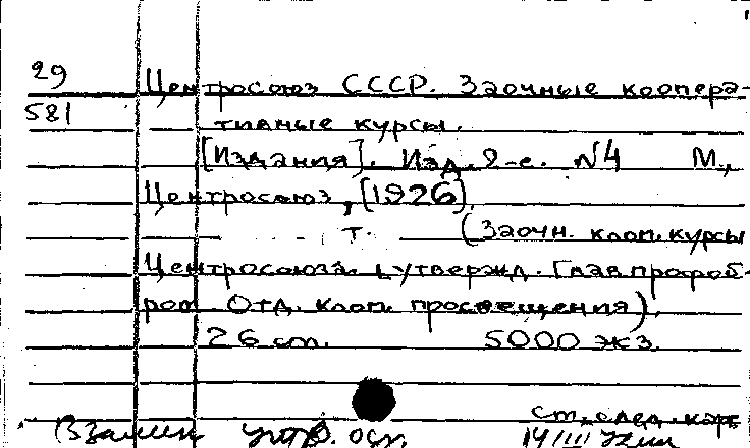 29
581
Центросоюз СССР. Заочные коопера-
тивные курсы.
[Издания]. Изд. 2-е. №4 М.,
Центросоюз, [1926].
т. (Заочн. кооп. курсы
Центросоюза, утвержд. Главпрофоб-
ром Отд. кооп. просвещения).
26 cm. 5000 экз.
см. след. карт.
Взамен
14/III